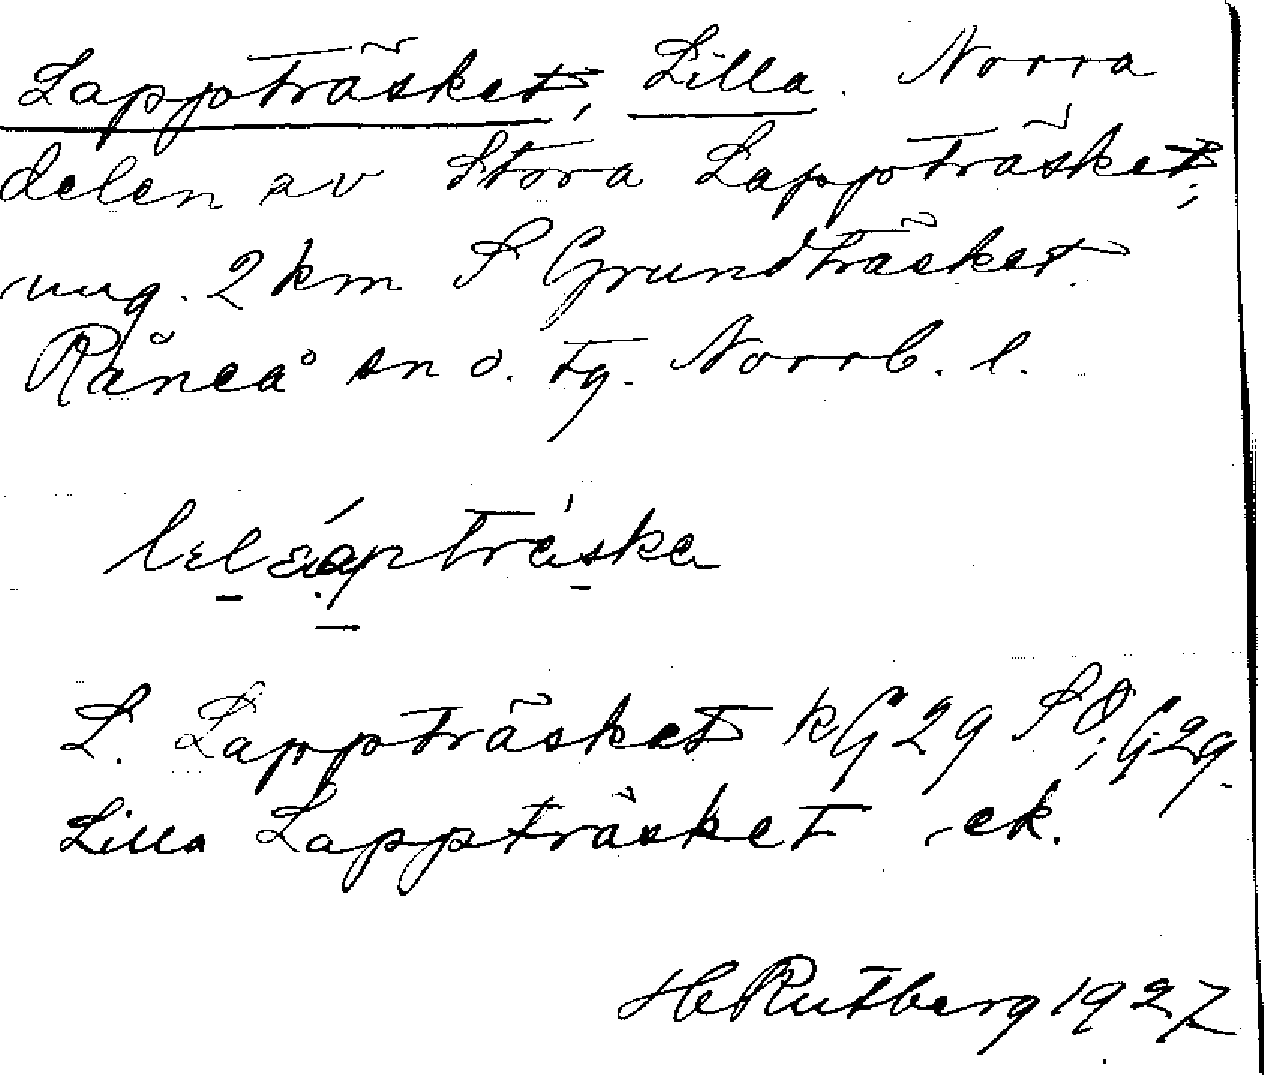 Lappträsket, Lilla. Norra
delen av Stora Lappträsket;
ung. 2 km S Grundträsket.
Råneå sn o. tg. Norrb. l.
L. Lappträsket kG29 SO; G29.
Lilla Lappträsket ek.
H Rutberg 1927